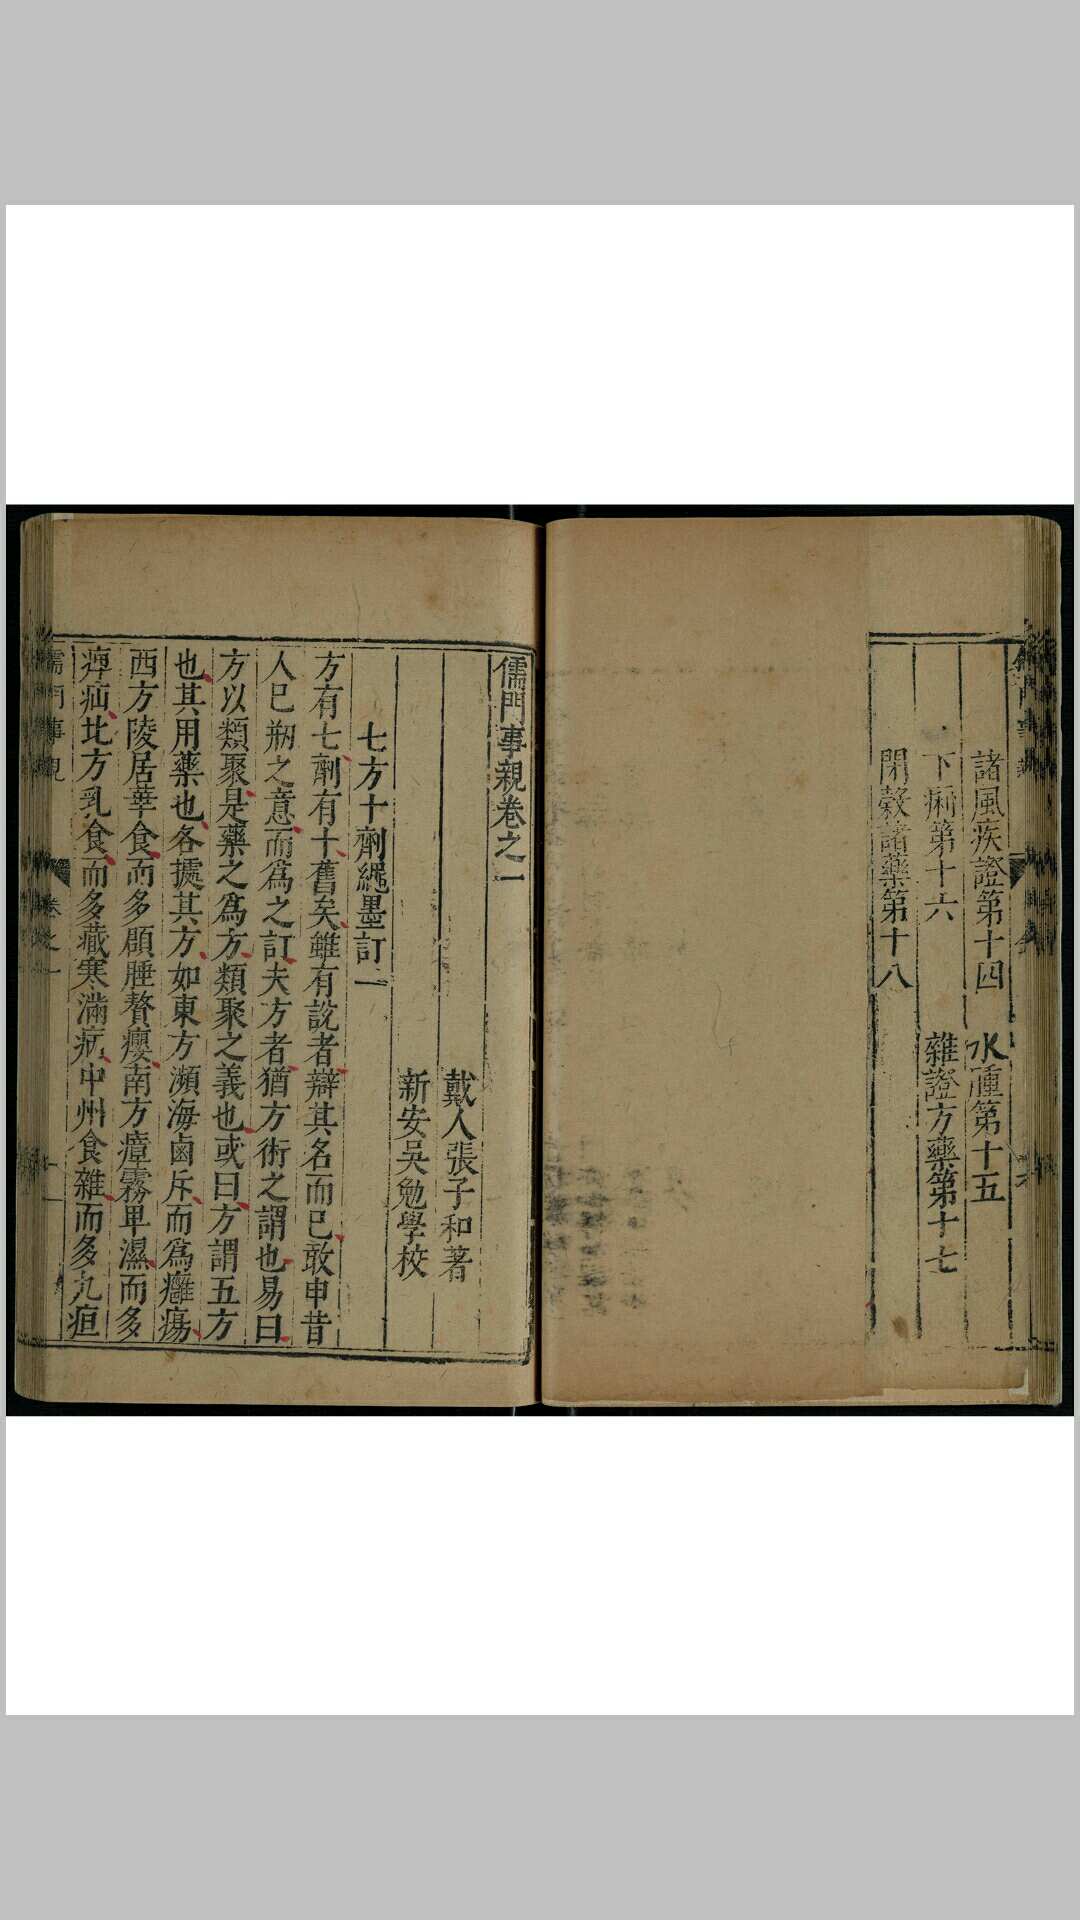 諸風疾證第十四　水腫第十五
下痢第十六　雜證方藥第十七
閉縠諸藥第十八
儒門事親卷之一
戴人張子和著
新安吳勉學校
七方十劑繩墨訂一
方有七劑有十舊矣雖有說者辯其名而已敢申昔
人已瓶之意而爲之訂夫方者猶方術之謂也易曰
方以類聚是藥之爲方類聚之義也或曰方謂五方
也其用藥也各據其方如東方瀕海鹵斥而爲癰瘍
西方陵居華食而多頤腫贅癭南方瘴霧卑濕而多
痺疝北方乳食而多藏寒滿病中州食雜而多九疸
儒門事親　卷之一　一